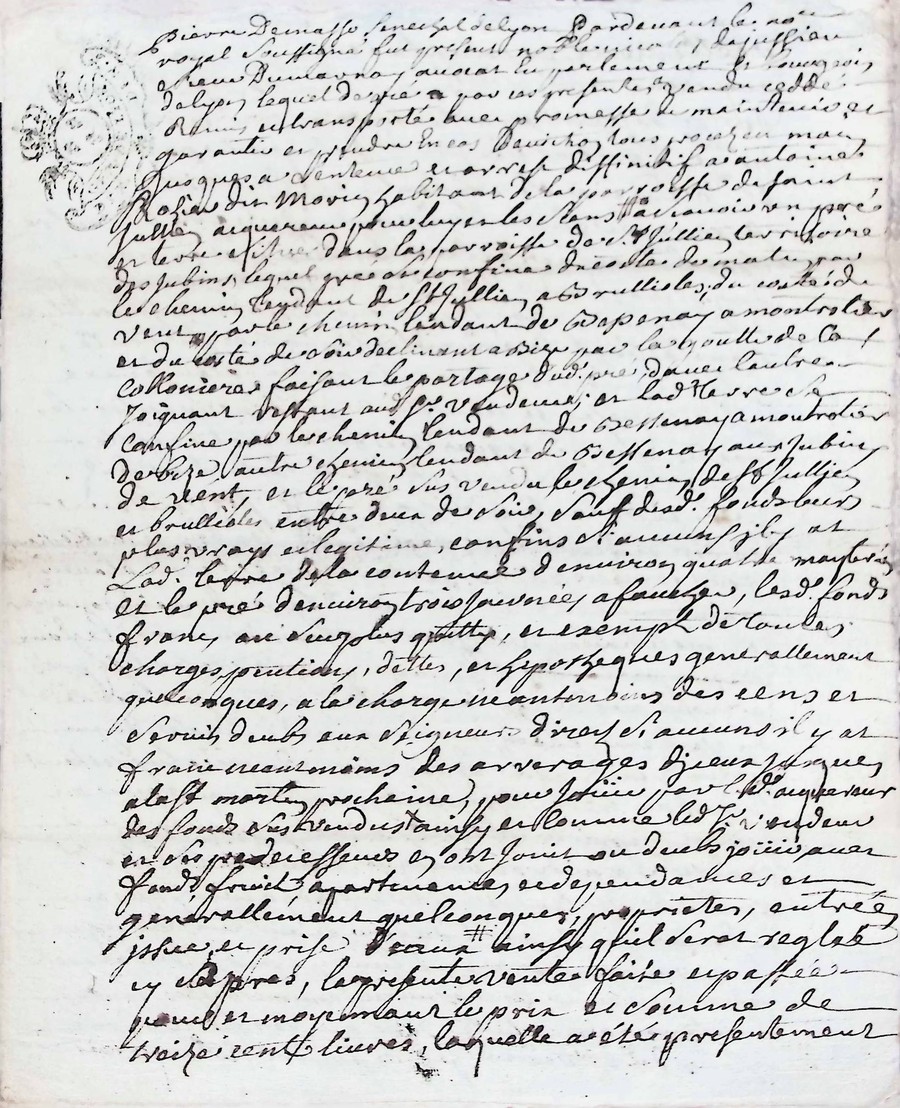 Pierre Demasso senechal de lyon Pardevant le no.re
royal soussigné fut present noble de jussieu
avocat En parlement et bourgeois
de lyon lequel de gre a par ces presentes vendu ceddé
Remis et transporté avec promesse de maintenir et
garantir et prendre En cas Deviction tous procez en main
jusques a sentence et arrest diffinitif a antoine
Rozier dit Morin habitant de la parroisse de saint
Jullien aiquereur pour luy et les siens # a scavoir un pré
et terre situes dans la parroisse de St Jullien territoire
des Jubins, lequel pre se confine du costé de matin par
le chemin tendant de St Jullien a Brullioles, du costé de
vent par le chemin tendant de Bessenay a montrotier
et du costé de soir declinant a Bize par la goutte de la
Colloniere faisant le partage dud. pré, davec l'autre
Joignant restant aud. Sr. vendeur; et lad. terre se
confine par le chemin tendant de Bessenay a montrotier
de bize, autre chemin tendant de Bessenay aux Jubins
de vent, et le pré sus vendu le chemin de St Jullien
et brullioles entre deux de soir, sauf desd. fonds leurs
plus vrays et legitimes confins si aucuns il y at
Lad. terre de la contenue d'environ quatre mayterées
et le pré denviron trois journées a faucher, lesd. fonds
francs au surplus quitte, et exempt de toutes
charges pentions, dettes, et hypotheques generallement
quelconques, a la charge neantmoins des cens et
servis deubs aux seigneurs direct si aucuns il y at
franc neantmoins des arrerages djceux jusques
a la St martin prochaine, pour jouir par led. acquereur
des fonds sus vendus tainsy et comme led. Sr. vendeur
et ses predecesseurs en ont jouit ou deubs jouir avec
fonds, fruit, apartenances et dependances et
generallement quelconques, proprietés, entrée,
issue, et prise d'eaux # ainsy quil serat reglet
cy apres, la presente vente faite et passée
pour et moyennant le prix et somme de
treize cent livres, laquelle a été presentement